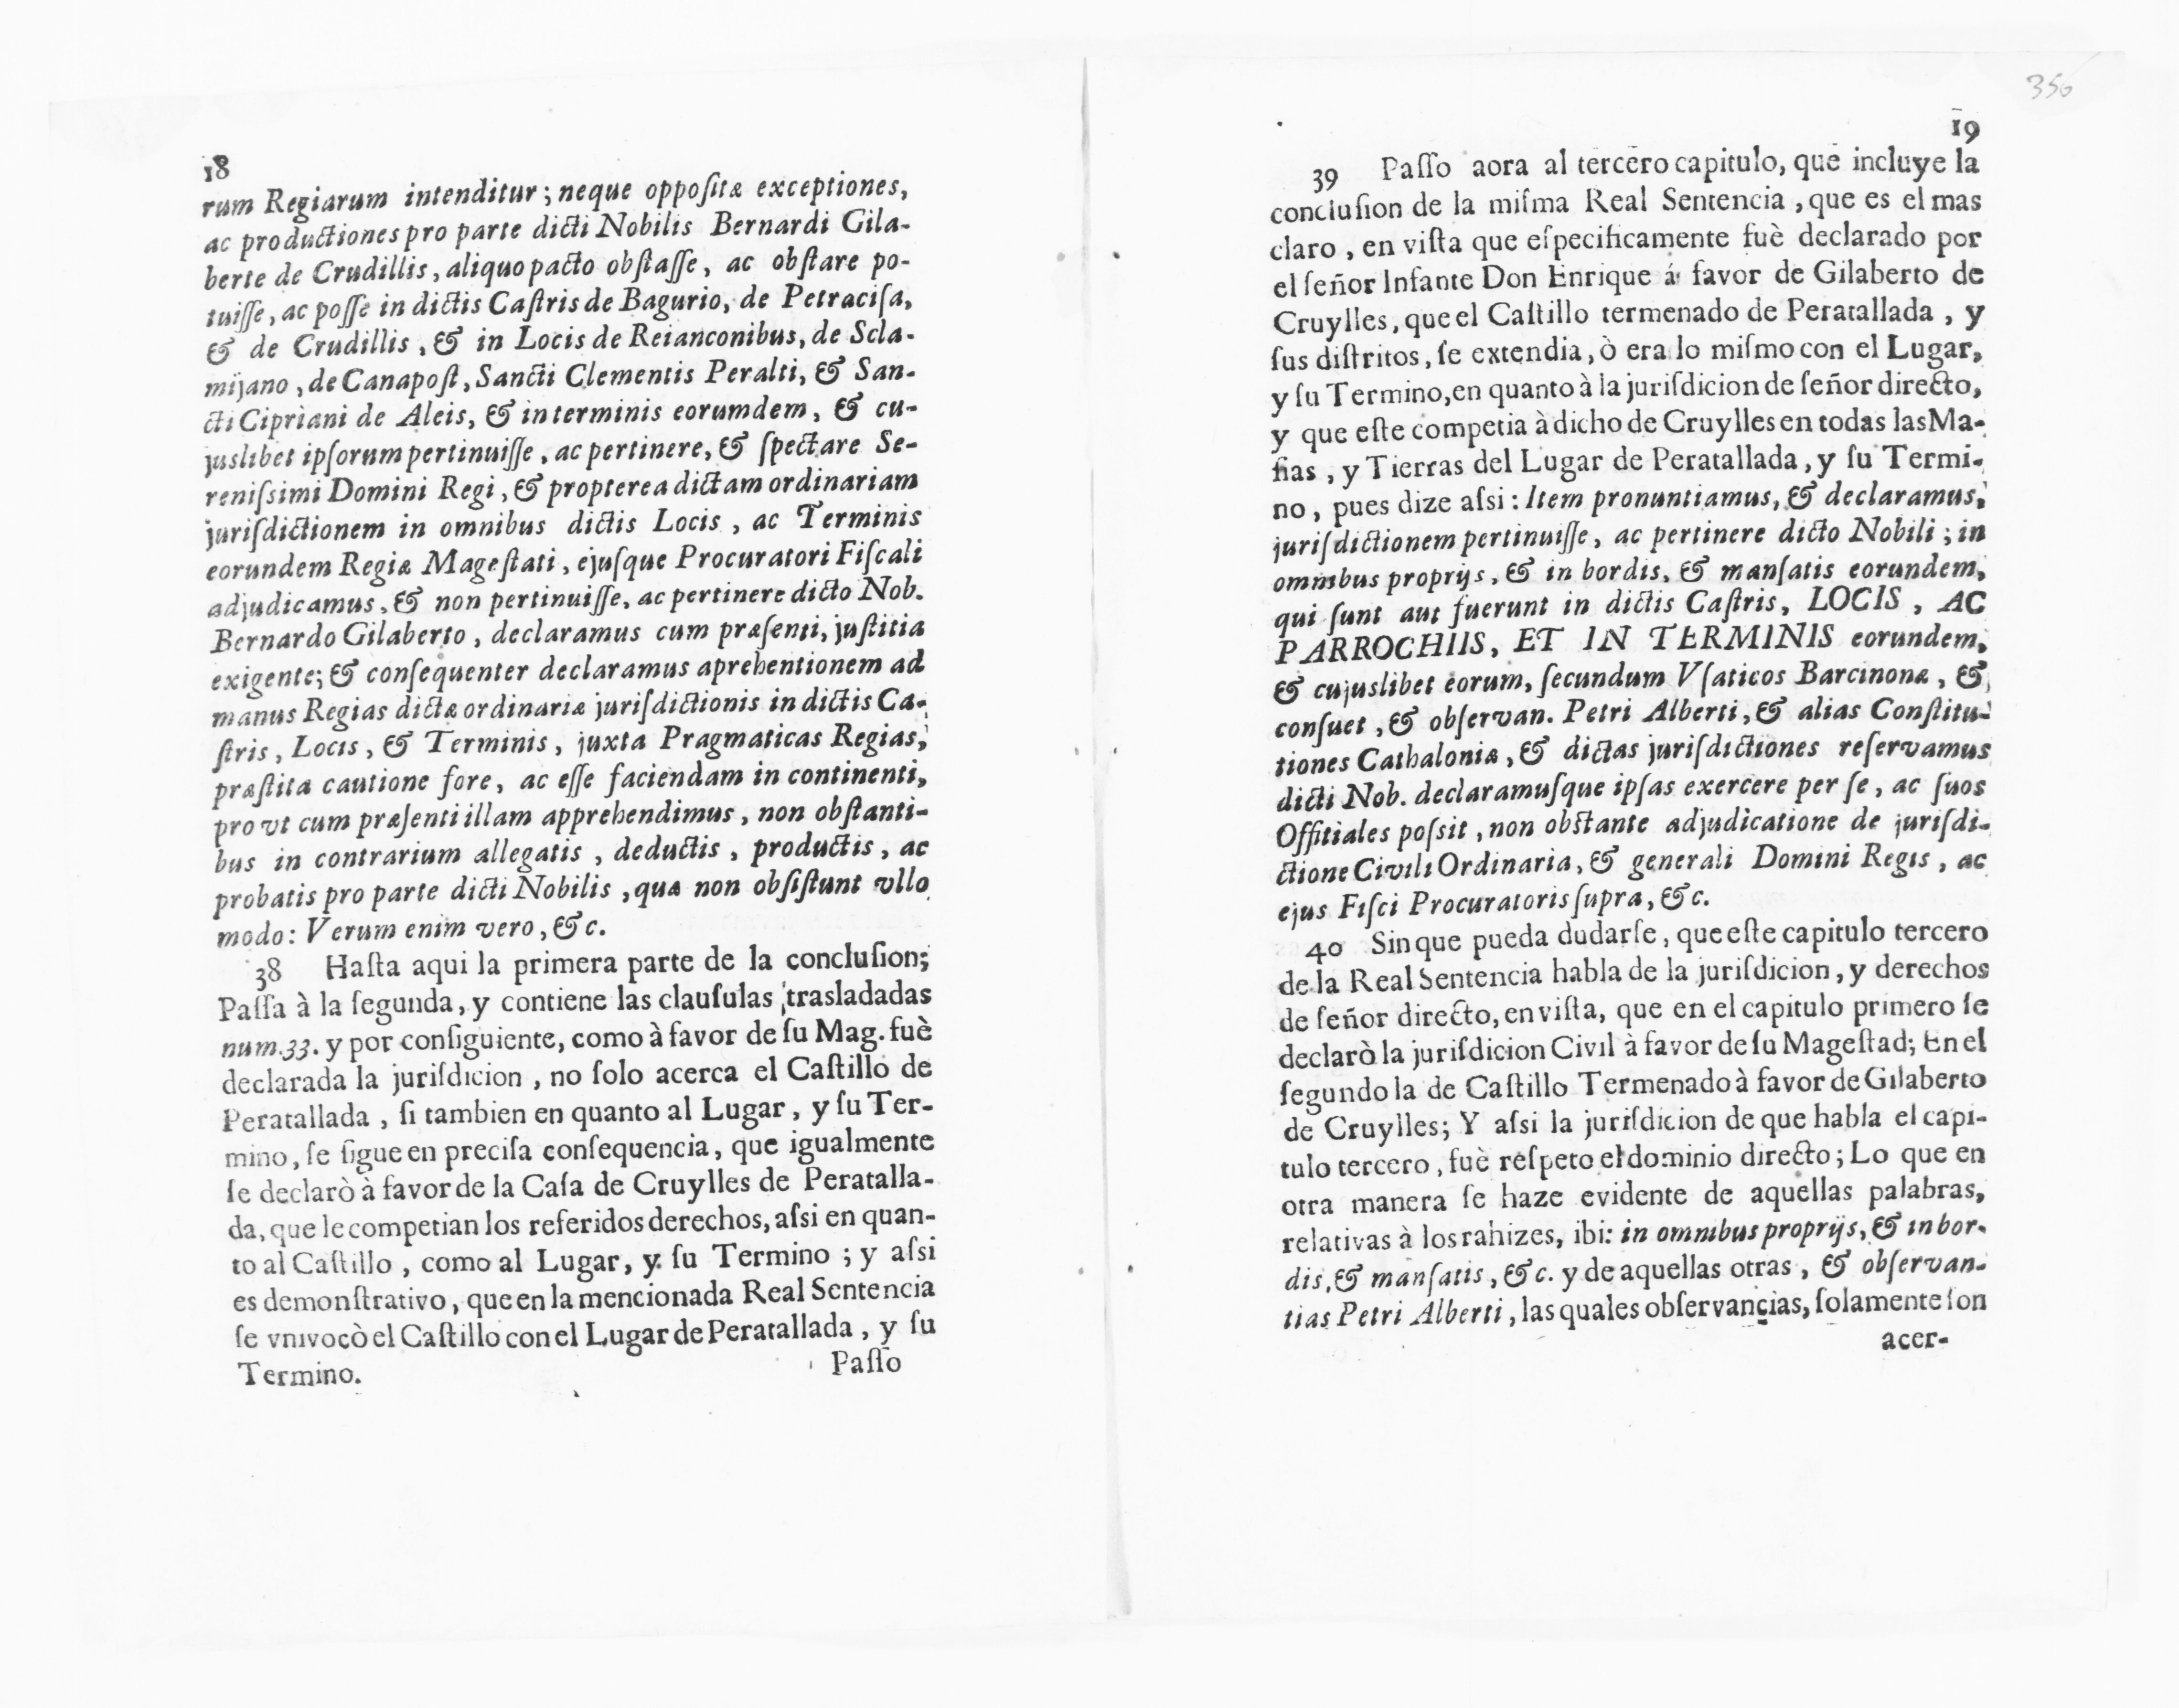 18
rum Regiarum intenditur; neque oppoſitæ exceptiones,
ac productiones pro parte dicti Nobilis Bernardi Gila-
berte de Crudillis, aliquo pacto obſtaſſe, ac obſtare po-
tuiſſe, ac poſſe in dictis Caſtris de Bagurio, de Petraciſa,
& de Crudillis, & in Locis de Reianconibus, de Scla-
mijano, de Canapoſt, Sancti Clementis Peralti, & San-
cti Cipriani de Aleis, & in terminis eorumdem, & cu-
juslibet ipſorum pertinuiſſe, ac pertinere, & ſpectare Se-
reniſsimi Domini Regi, & propterea dictam ordinariam
juriſdictionem in omnibus dictis Locis, ac Terminis
eorundem Regiæ Mageſtati, ejuſque Procuratori Fiſcali
adjudicamus, & non pertinuiſſe, ac pertinere dicto Nob.
Bernardo Gilaberto, declaramus cum præſenti, juſtitia
exigente; & conſequenter declaramus aprehentionem ad
manus Regias dictæ ordinariæ juriſdictionis in dictis Ca-
ſtris, Locis, & Terminis, juxta Pragmaticas Regias,
præſtita cautione fore, ac eſſe faciendam in continenti,
pro vt cum præſenti illam apprehendimus, non obſtanti-
bus in contrarium allegatis, deductis, productis, ac
probatis pro parte dicti Nobilis, quæ non obſiſtunt vllo
modo: Verum enim vero, &c.
38 Haſta aqui la primera parte de la concluſion;
Paſſa à la ſegunda, y contiene las clauſulas trasladadas
num.33. y por conſiguiente, como à favor de ſu Mag. fuè
declarada la juriſdicion, no ſolo acerca el Caſtillo de
Peratallada, ſi tambien en quanto al Lugar, y ſu Ter-
mino, ſe ſigue en preciſa conſequencia, que igualmente
ſe declarò à favor de la Caſa de Cruylles de Peratalla-
da, que le competian los referidos derechos, aſsi en quan-
to al Caſtillo, como al Lugar, y ſu Termino; y aſsi
es demonſtrativo, que en la mencionada Real Sentencia
ſe vnivocò el Caſtillo con el Lugar de Peratallada, y ſu
Termino.
Paſſo
350
19
39 Paſſo aora al tercero capitulo, que incluye la
concluſion de la miſma Real Sentencia, que es el mas
claro, en viſta que eſpecificamente fuè declarado por
el ſeñor Infante Don Enrique á favor de Gilaberto de
Cruylles, que el Caſtillo termenado de Peratallada, y
ſus diſtritos, ſe extendia, ò era lo miſmo con el Lugar,
y ſu Termino, en quanto à la juriſdicion de ſeñor directo,
y que eſte competia à dicho de Cruylles en todas las Ma-
ſias, y Tierras del Lugar de Peratallada, y ſu Termi-
no, pues dize aſsi: Item pronuntiamus, & declaramus,
juriſdictionem pertinuiſſe, ac pertinere dicto Nobili; in
omnibus proprijs, & in bordis, & manſatis eorundem,
qui ſunt aut fuerunt in dictis Caſtris, LOCIS, AC
PARROCHIIS, ET IN TERMINIS eorundem,
& cujuslibet eorum, ſecundum Vſaticos Barcinonæ, &
conſuet, & obſervan. Petri Alberti, & alias Conſtitu-
tiones Cathaloniæ, & dictas juriſdictiones reſervamus
dicti Nob. declaramuſque ipſas exercere per ſe, ac ſuos
Offitiales poſsit, non obſtante adjudicatione de juriſdi-
ctione Civili Ordinaria, & generali Domini Regis, ac
ejus Fiſci Procuratoris ſupra, &c.
40 Sin que pueda dudarſe, que eſte capitulo tercero
de la Real Sentencia habla de la juriſdicion, y derechos
de ſeñor directo, en viſta, que en el capitulo primero ſe
declarò la juriſdicion Civil à favor de ſu Mageſtad; En el
ſegundo la de Caſtillo Termenado à favor de Gilaberto
de Cruylles; Y aſsi la juriſdicion de que habla el capi-
tulo tercero, fuè reſpeto el dominio directo; Lo que en
otra manera ſe haze evidente de aquellas palabras,
relativas à los rahizes, ibi: in omnibus proprijs, & in bor-
dis, & manſatis, &c. y de aquellas otras, & obſervan-
tias Petri Alberti, las quales obſervancias, ſolamente ſon
acer-